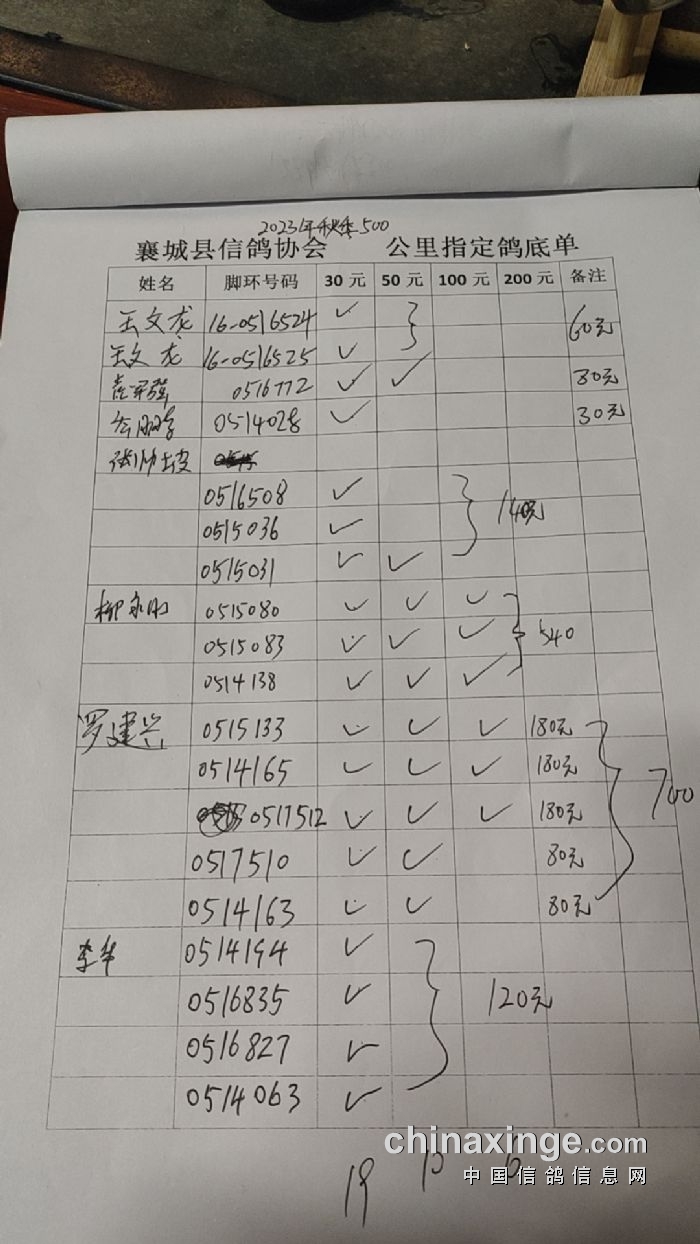 2023年秋季500
襄城县信鸽协会 公里指定鸽底单
姓名 脚环号码 30元 50元 100元 200元 备注
王文龙 16-0516524 ✓
王文龙 16-0516525 ✓ 60元
0516772 ✓ ✓ 80元
0514028 ✓ 30元
张帅
0516508 ✓
0515036 ✓ 140元
0515031 ✓ ✓
柳永刚 0515080 ✓ ✓ ✓
0515083 ✓ ✓ ✓ 540
0514138 ✓ ✓ ✓
罗建兴 0515133 ✓ ✓ ✓ 180元
0514165 ✓ ✓ ✓ 180元
0517512 ✓ ✓ ✓ 180元 700
0517510 ✓ ✓ 80元
0514163 ✓ ✓ 80元
李华 0514194 ✓
0516835 ✓ 120元
0516827 ✓
0514063 ✓
19 10 6
chinaxinge.com
中国信鸽信息网